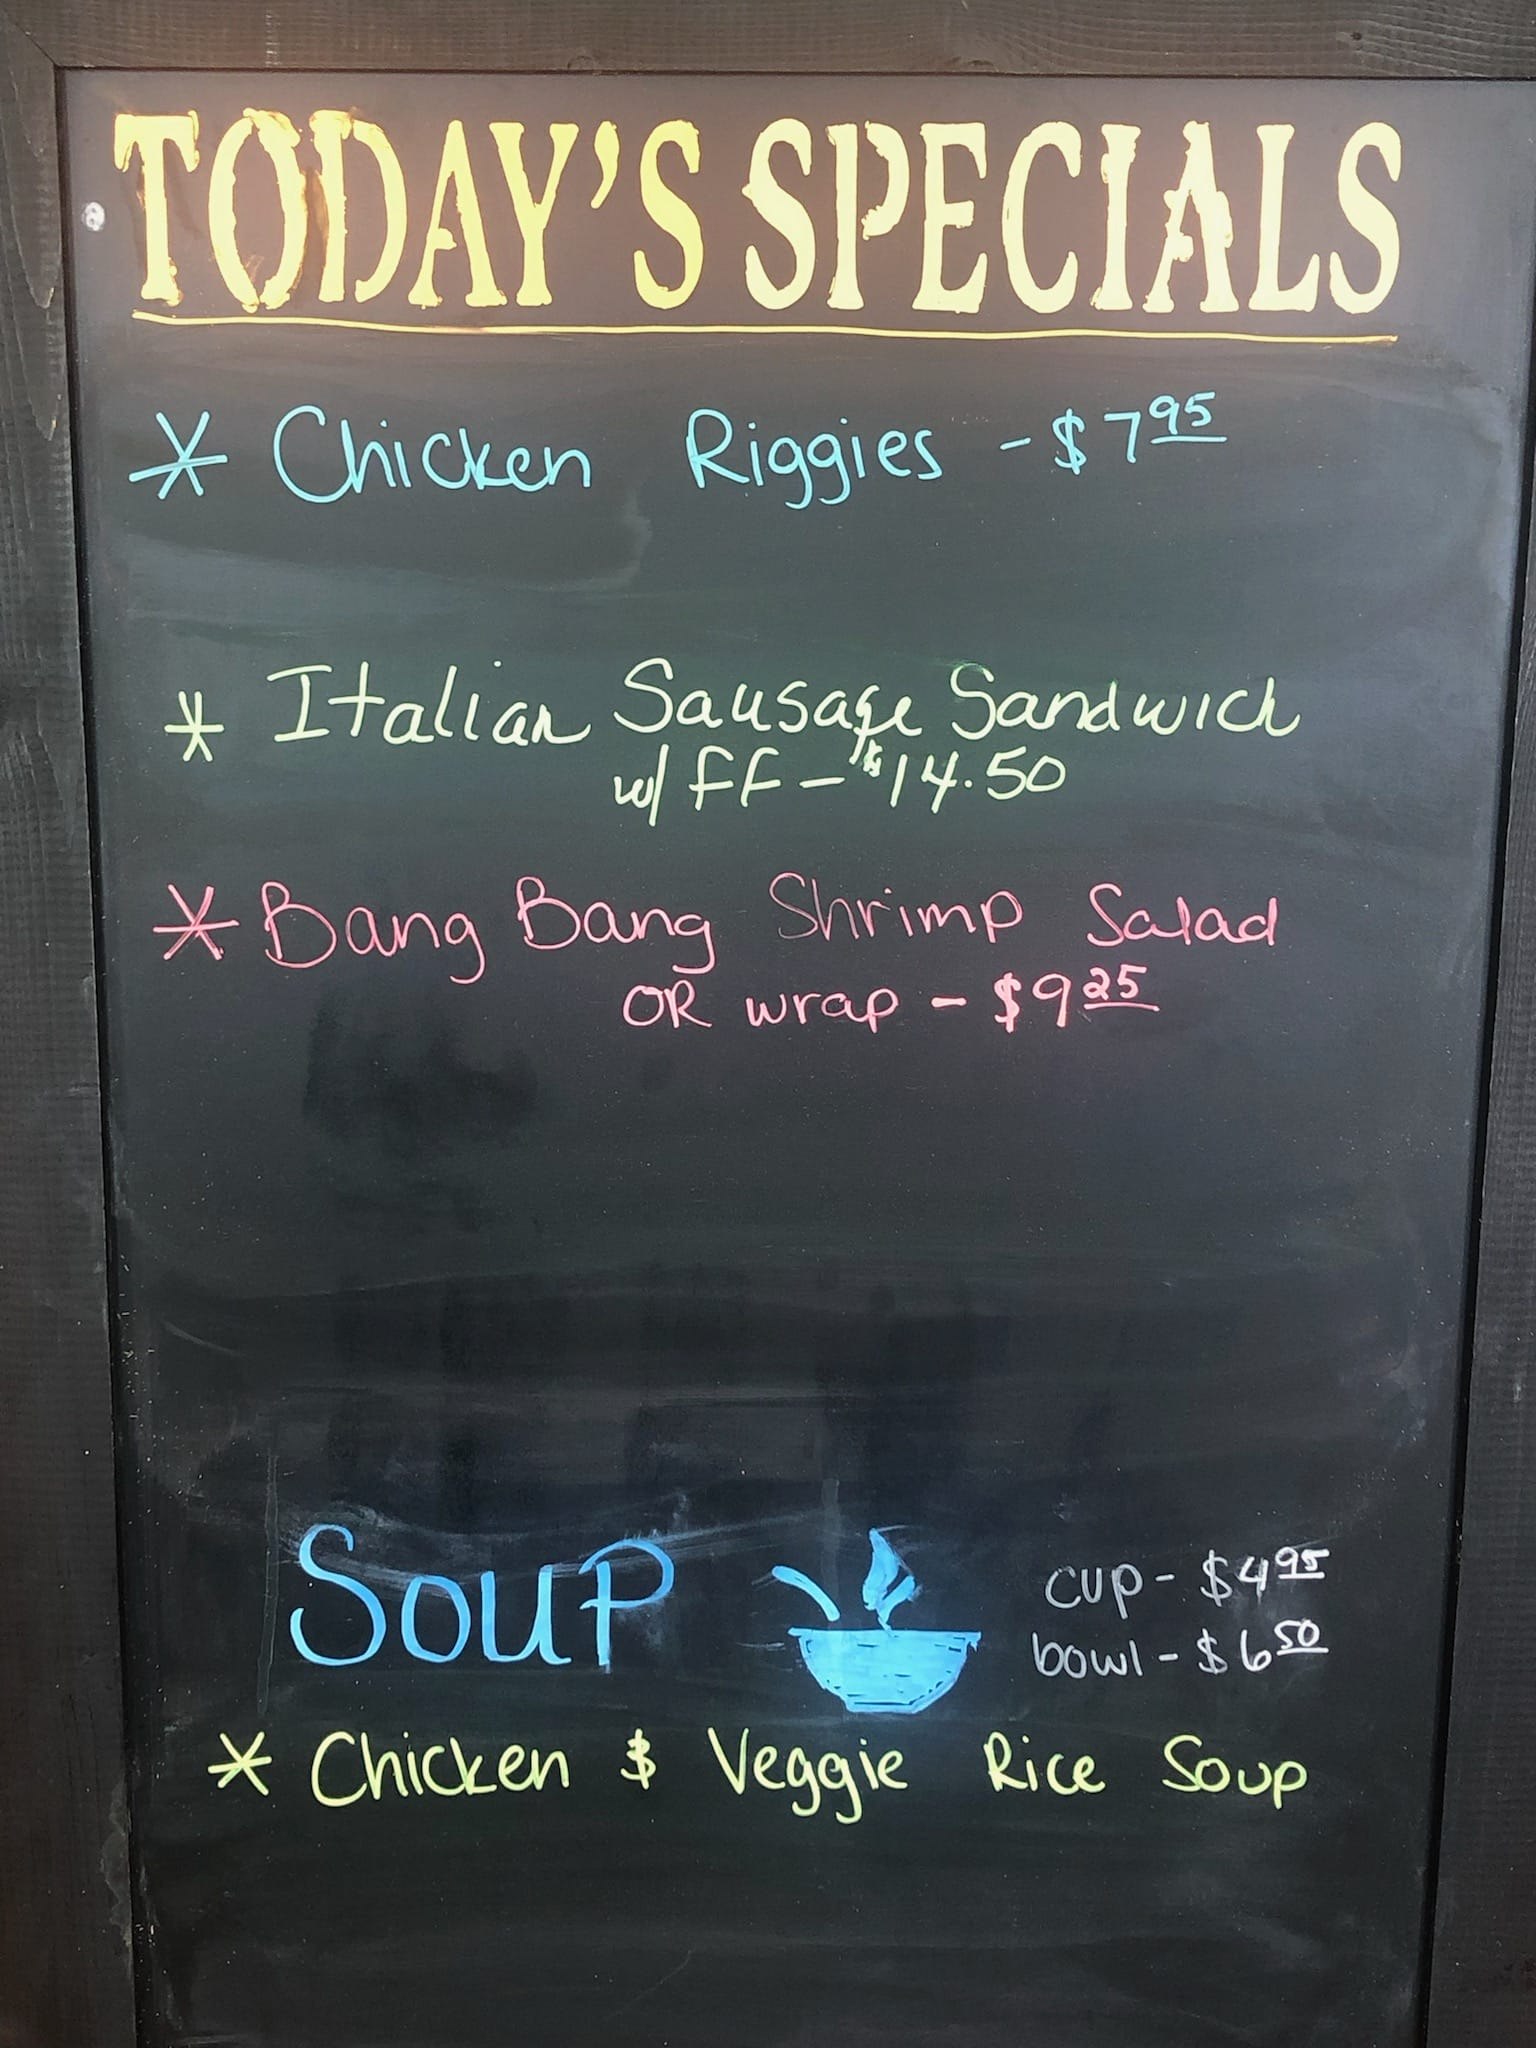 TODAY'S SPECIALS
* Chicken Riggies - $7 95
* Italian Sausage Sandwich
w/ FF - $14.50
* Bang Bang Shrimp Salad
OR wrap - $9 25
Soup
cup - $4 95
bowl - $6 50
* Chicken & Veggie Rice Soup